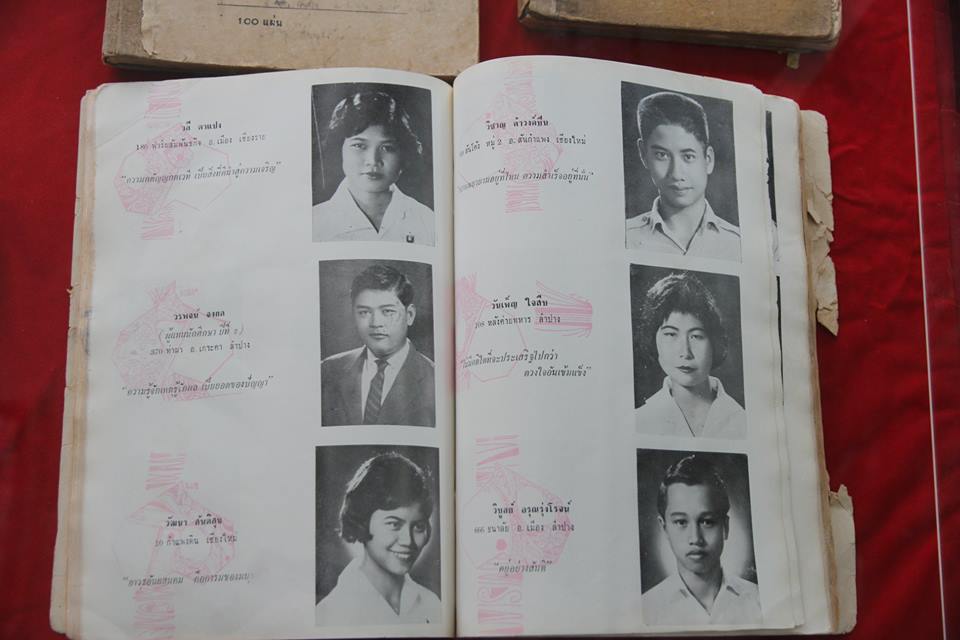 100 แผ่น
วลี ตาแปง
อ.เมือง เชียงราย
"ความกตัญญูกตเวที เป็นสิ่งที่นำสู่ความเจริญ"
วรพจน์ จงกล
(ผู้แทนนักศึกษา ปีที่
370 ท่าผา อ.เกาะคา ลำปาง
"ความรู้จักเหตุรู้จักผล เป็นยอดของปัญญา"
วัฒนา ตันติสุข
10 กำแพงดิน เชียงใหม่
คือการชนะ
วิชาญ คำวงค์ปิน
หมู่ 2 อ.สันกำแพง เชียงใหม่
ความพยายามอยู่ที่ไหน ความสำเร็จอยู่ที่นั่น"
วันเพ็ญ ใจสืบ
108 หลังค่ายทหาร ลำปาง
"ไม่มีสิ่งใดที่จะประเสริฐไปกว่า
ดวงใจอันเข้มแข็ง"
วิบูลย์ อรุณรุ่งโรจน์
666 ธนาลัย อ.เมือง ลำปาง
"อยู่อย่างสันติ"